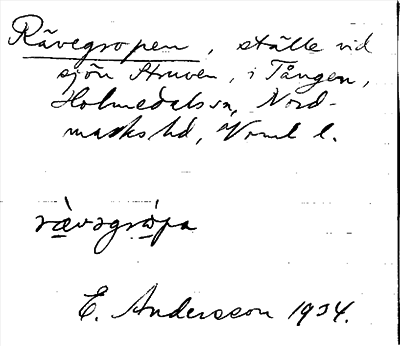 Rävegropen, ställe vid
sjön Struven, i Tången,
Holmedals sn, Nord-
marks hd, Vrml l.
rä̀vəgrópa
E. Andersson 1934.